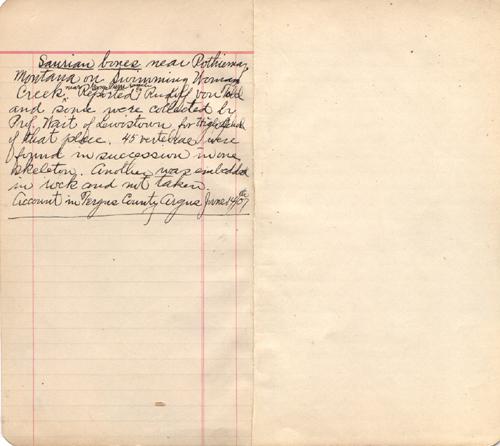 Saurian bones near
Montana on Swimming Woman
Creek. Reported Rudiff von
and some were collected by
Prof. Wait of Lewistown for High School
of that place. 45 vertebrae were
found in succession in one
skeleton. Another was embedded
in rock and not taken.
Account in Fergus County Argus June